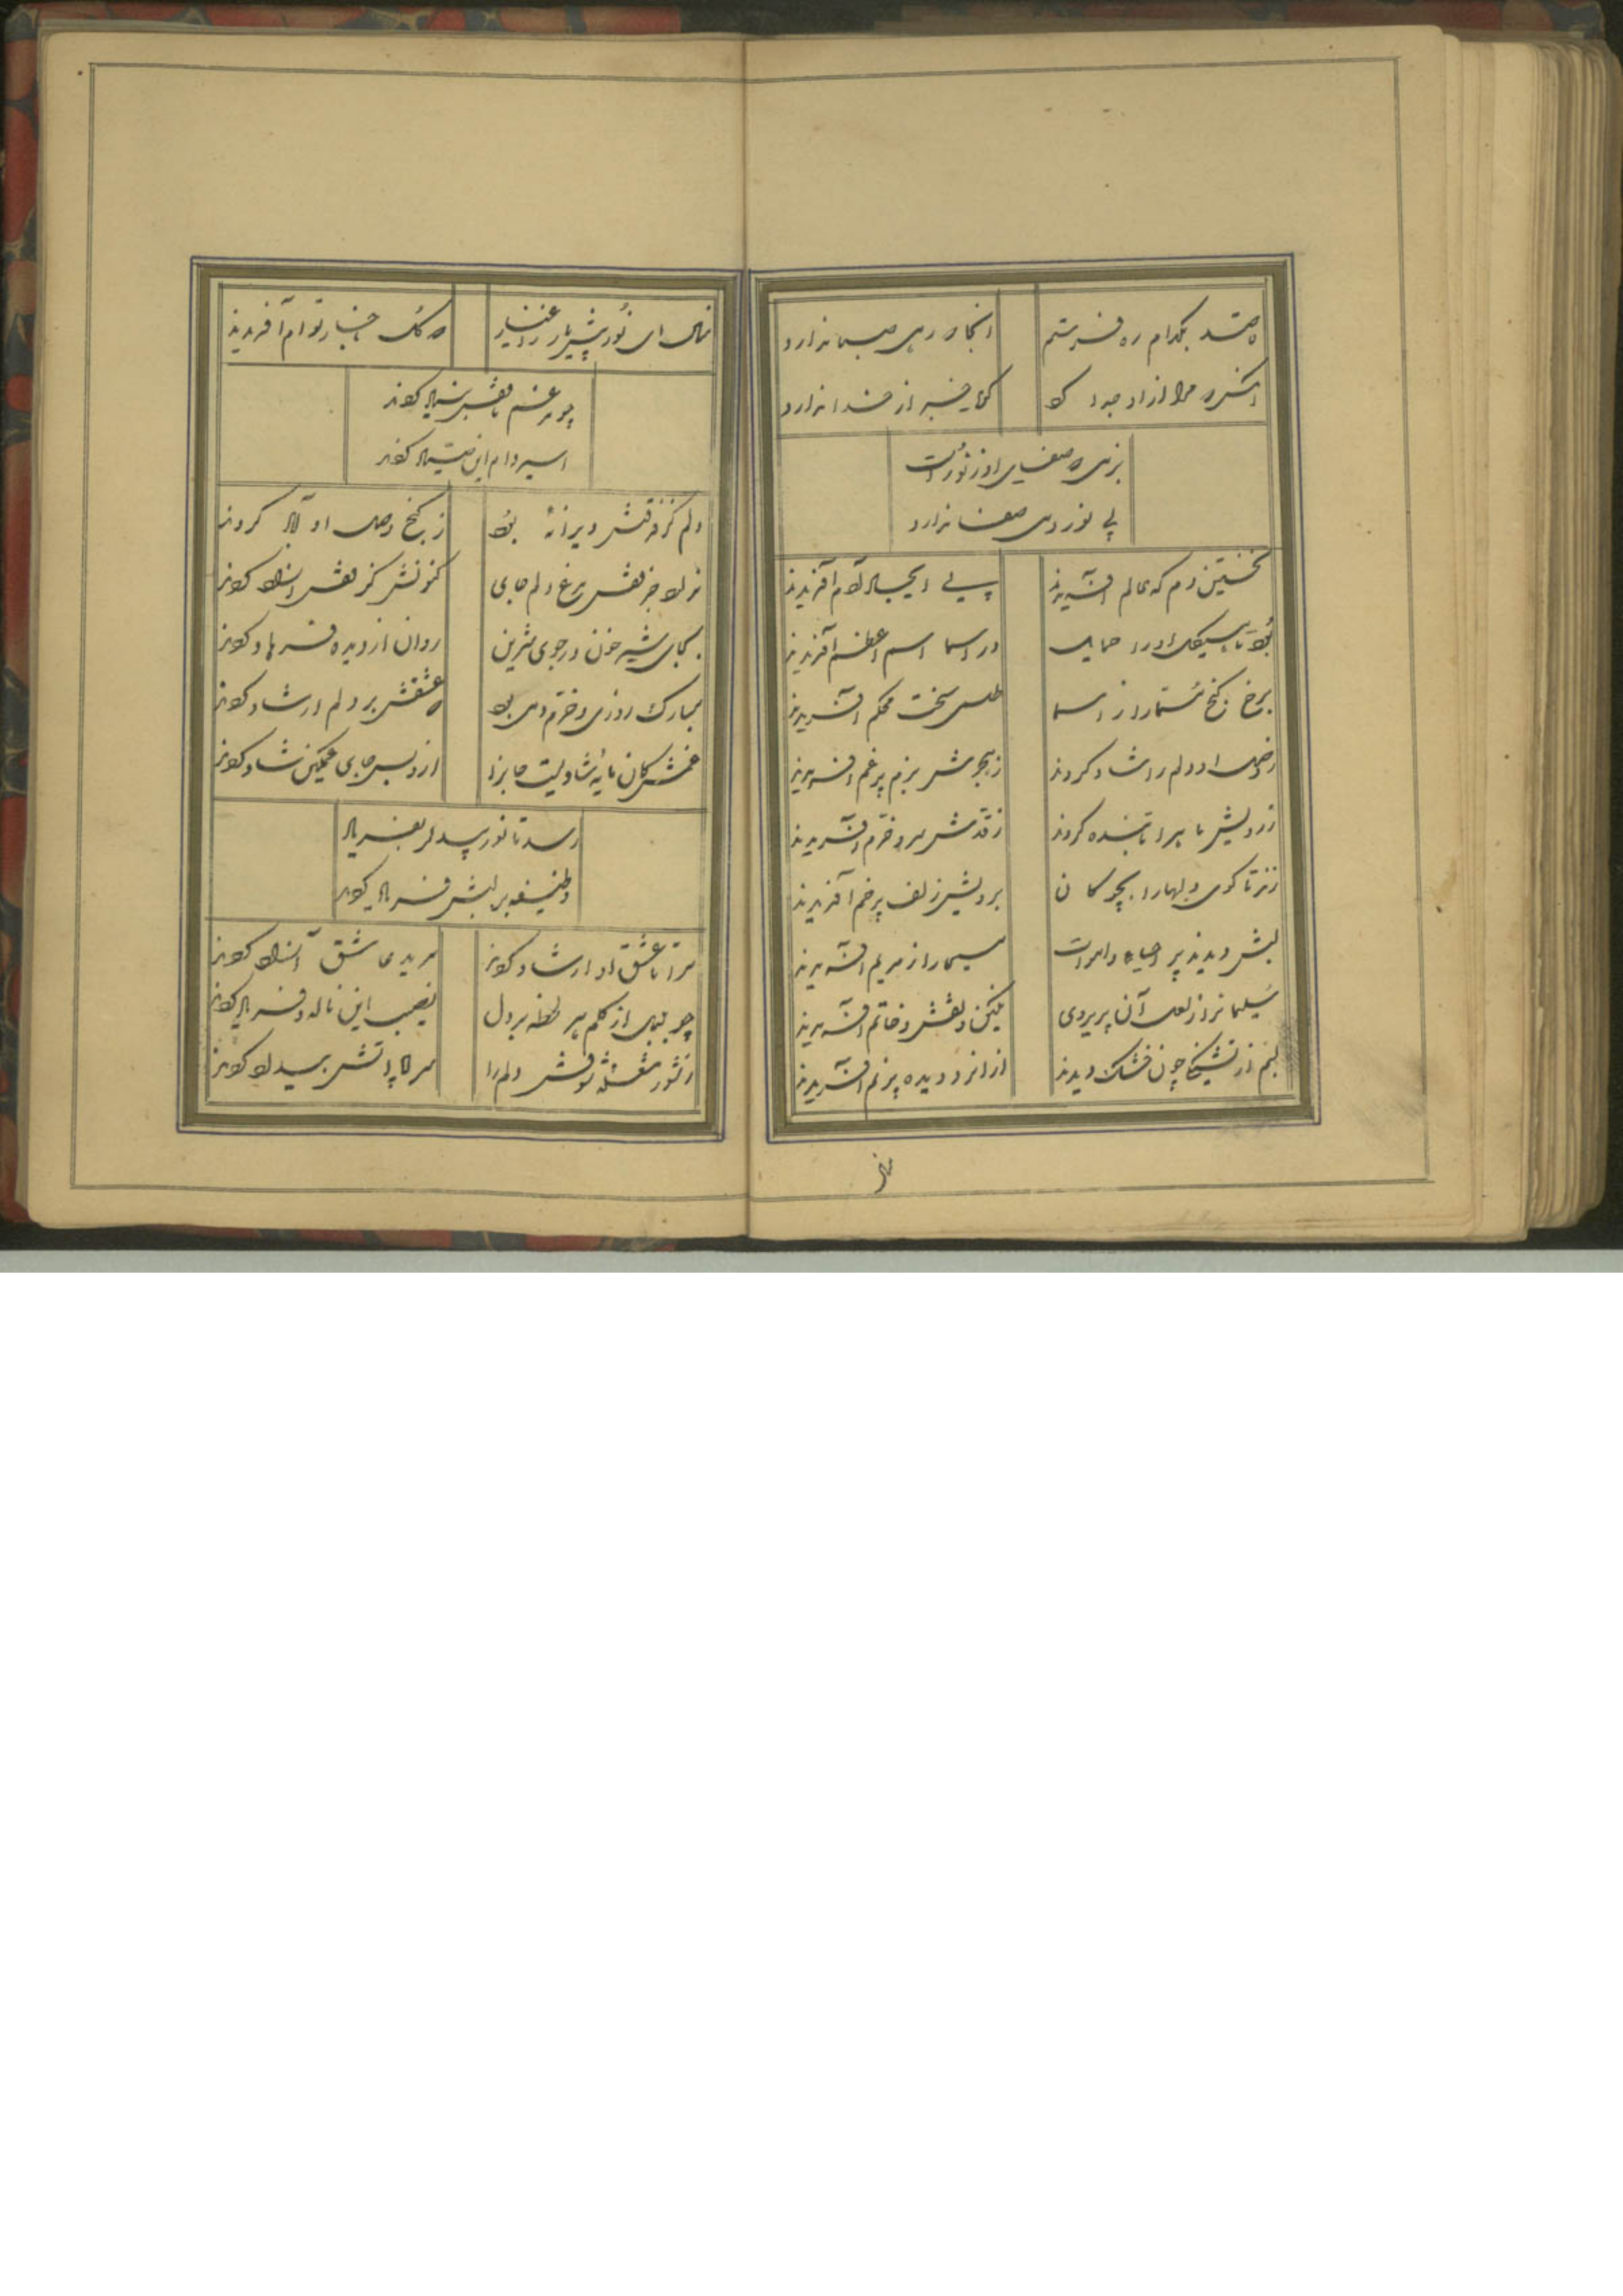 قاصد بکدام ره فرستم
آنجا که رهی صبا ندارد
آنکس که مرا از او جدا کرد
گویا خبر از خدا ندارد
بزمی که صفای او ز نور است
بی نور دمی صفا ندارد
نخستین دم که عالم آفریدند
پی ایجاد آدم آفریدند
بود تا هیکل او را حمایل
در اسما اسم اعظم آفریدند
برخ گنج از اسما
طلسمی سخت محکم آفریدند
ز وصل او دلم را شاد کردند
ز هجرش بزم پر غم آفریدند
ز رویش ماه را تابنده کردند
ز قدش سرو خرم آفریدند
زنند تا گوی دلها را بچوگان
برویش زلف پر خم آفریدند
لبش دیدند پر احیاء اموات
مسیحا را ز مریم آفریدند
سلیمان را ز لعل آن پریروی
نگین و نقش و خاتم آفریدند
لبم از تشنگی چون خشک دیدند
از آنرو دیده پر نم آفریدند
نهال ای نور پیش یار و اغیار
که گل با خار توام آفریدند
چو مرغم تا قفس بنیاد کردند
اسیر دام این صیاد کردند
دلم کز فرقتش ویرانه بود
ز گنج وصل او آباد کردند
نبود جز قفس مرغ دلم جای
کنونش کز قفس آزاد کردند
بجای شیر خون در جوی شیرین
روان از دیده فرهاد کردند
مبارک روزی و خرم دمی بود
که عشقش بر دلم ارشاد کردند
غمش کان مایه شادیست جانرا
از و بس جای غمگین شاد کردند
رسد تا نور پیدل بفریاد
وظیفه بر لبش فریاد کردند
مرا تا عشق او ارشاد کردند
مرید عاشق آزاد کردند
چو بلبل از گلم هر لحظه بر دل
نصیب این ناله و فریاد کردند
ز شور شعله شوقش دلم را
سراپا آتش بیداد کردند